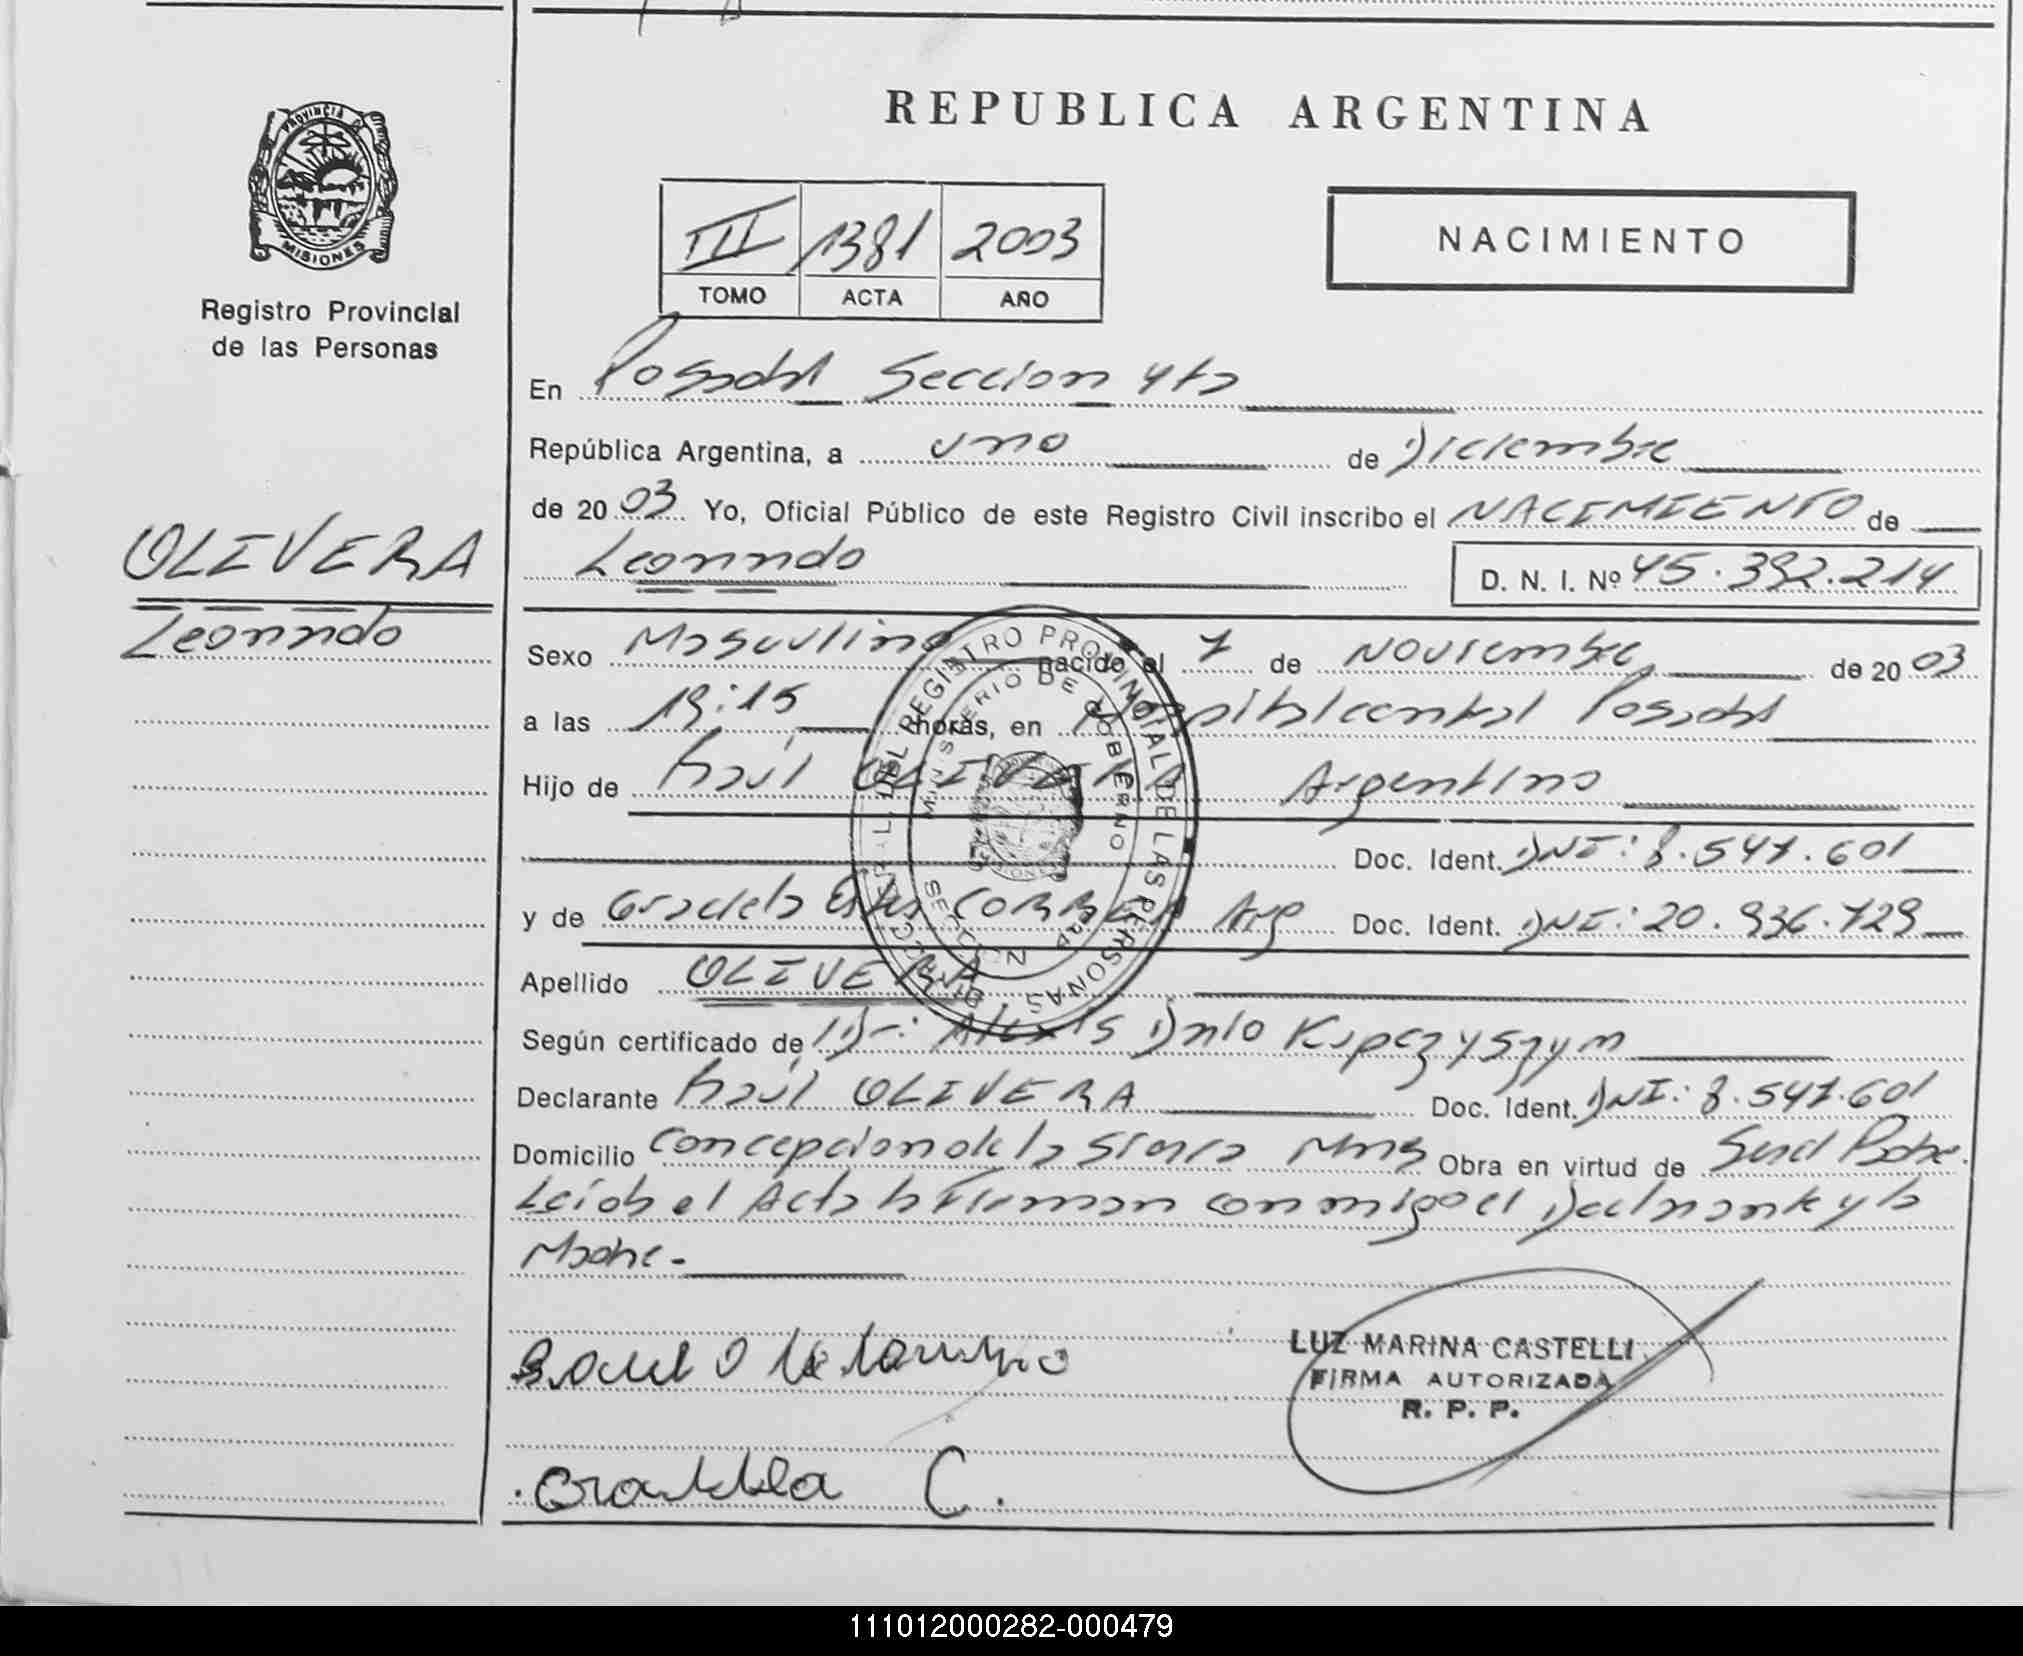 REPUBLICA ARGENTINA
PROVINCIA DE
MISIONES
Registro Provincial
de las Personas
III 1381 2003
TOMO ACTA AÑO
NACIMIENTO
En Posadas Seccion 4ta
República Argentina, a uno de Diciembre
de 2003 Yo, Oficial Público de este Registro Civil inscribo el NACIMIENTO de
OLIVERA
Leonardo
Leonardo D. N. I. Nº 45.392.214
Sexo Masculino nacido el 7 de Noviembre de 2003
a las 19:15 horas, en Hospital central Posadas
Hijo de Raúl OLIVERA Argentino
Doc. Ident. DNI: 8.547.601
y de Graciela CORREA Arg Doc. Ident. DNI: 20.936.729
Apellido OLIVERA
Según certificado de Dr: Alexis Dario Kupczyszyn
Declarante Raúl OLIVERA Doc. Ident. DNI: 8.547.601
Domicilio Concepcion de la Sierra Mnes Obra en virtud de Ser el Padre.
Leída el Acta la Firman conmigo el Declarante y la
Madre-
DIRECC. GRAL. DEL REGISTRO PROVINCIAL DE LAS PERSONAS
MINISTERIO DE GOBIERNO
SECCION
LUZ MARINA CASTELLI
FIRMA AUTORIZADA
R. P. P.
C.
111012000282-000479